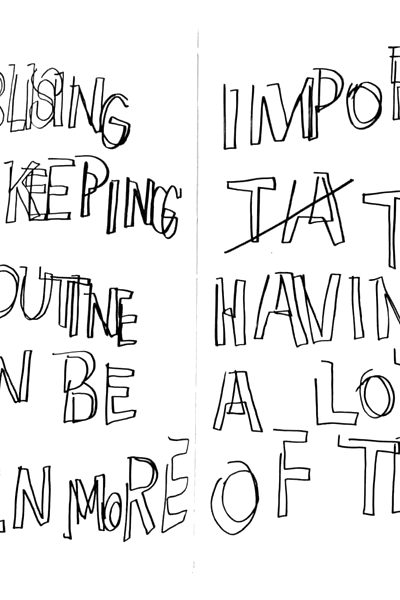 BLISING
KEEPING
OUTINE
N BE
N MORE
IMPO
TA T
HAVIN
A LO
OF T